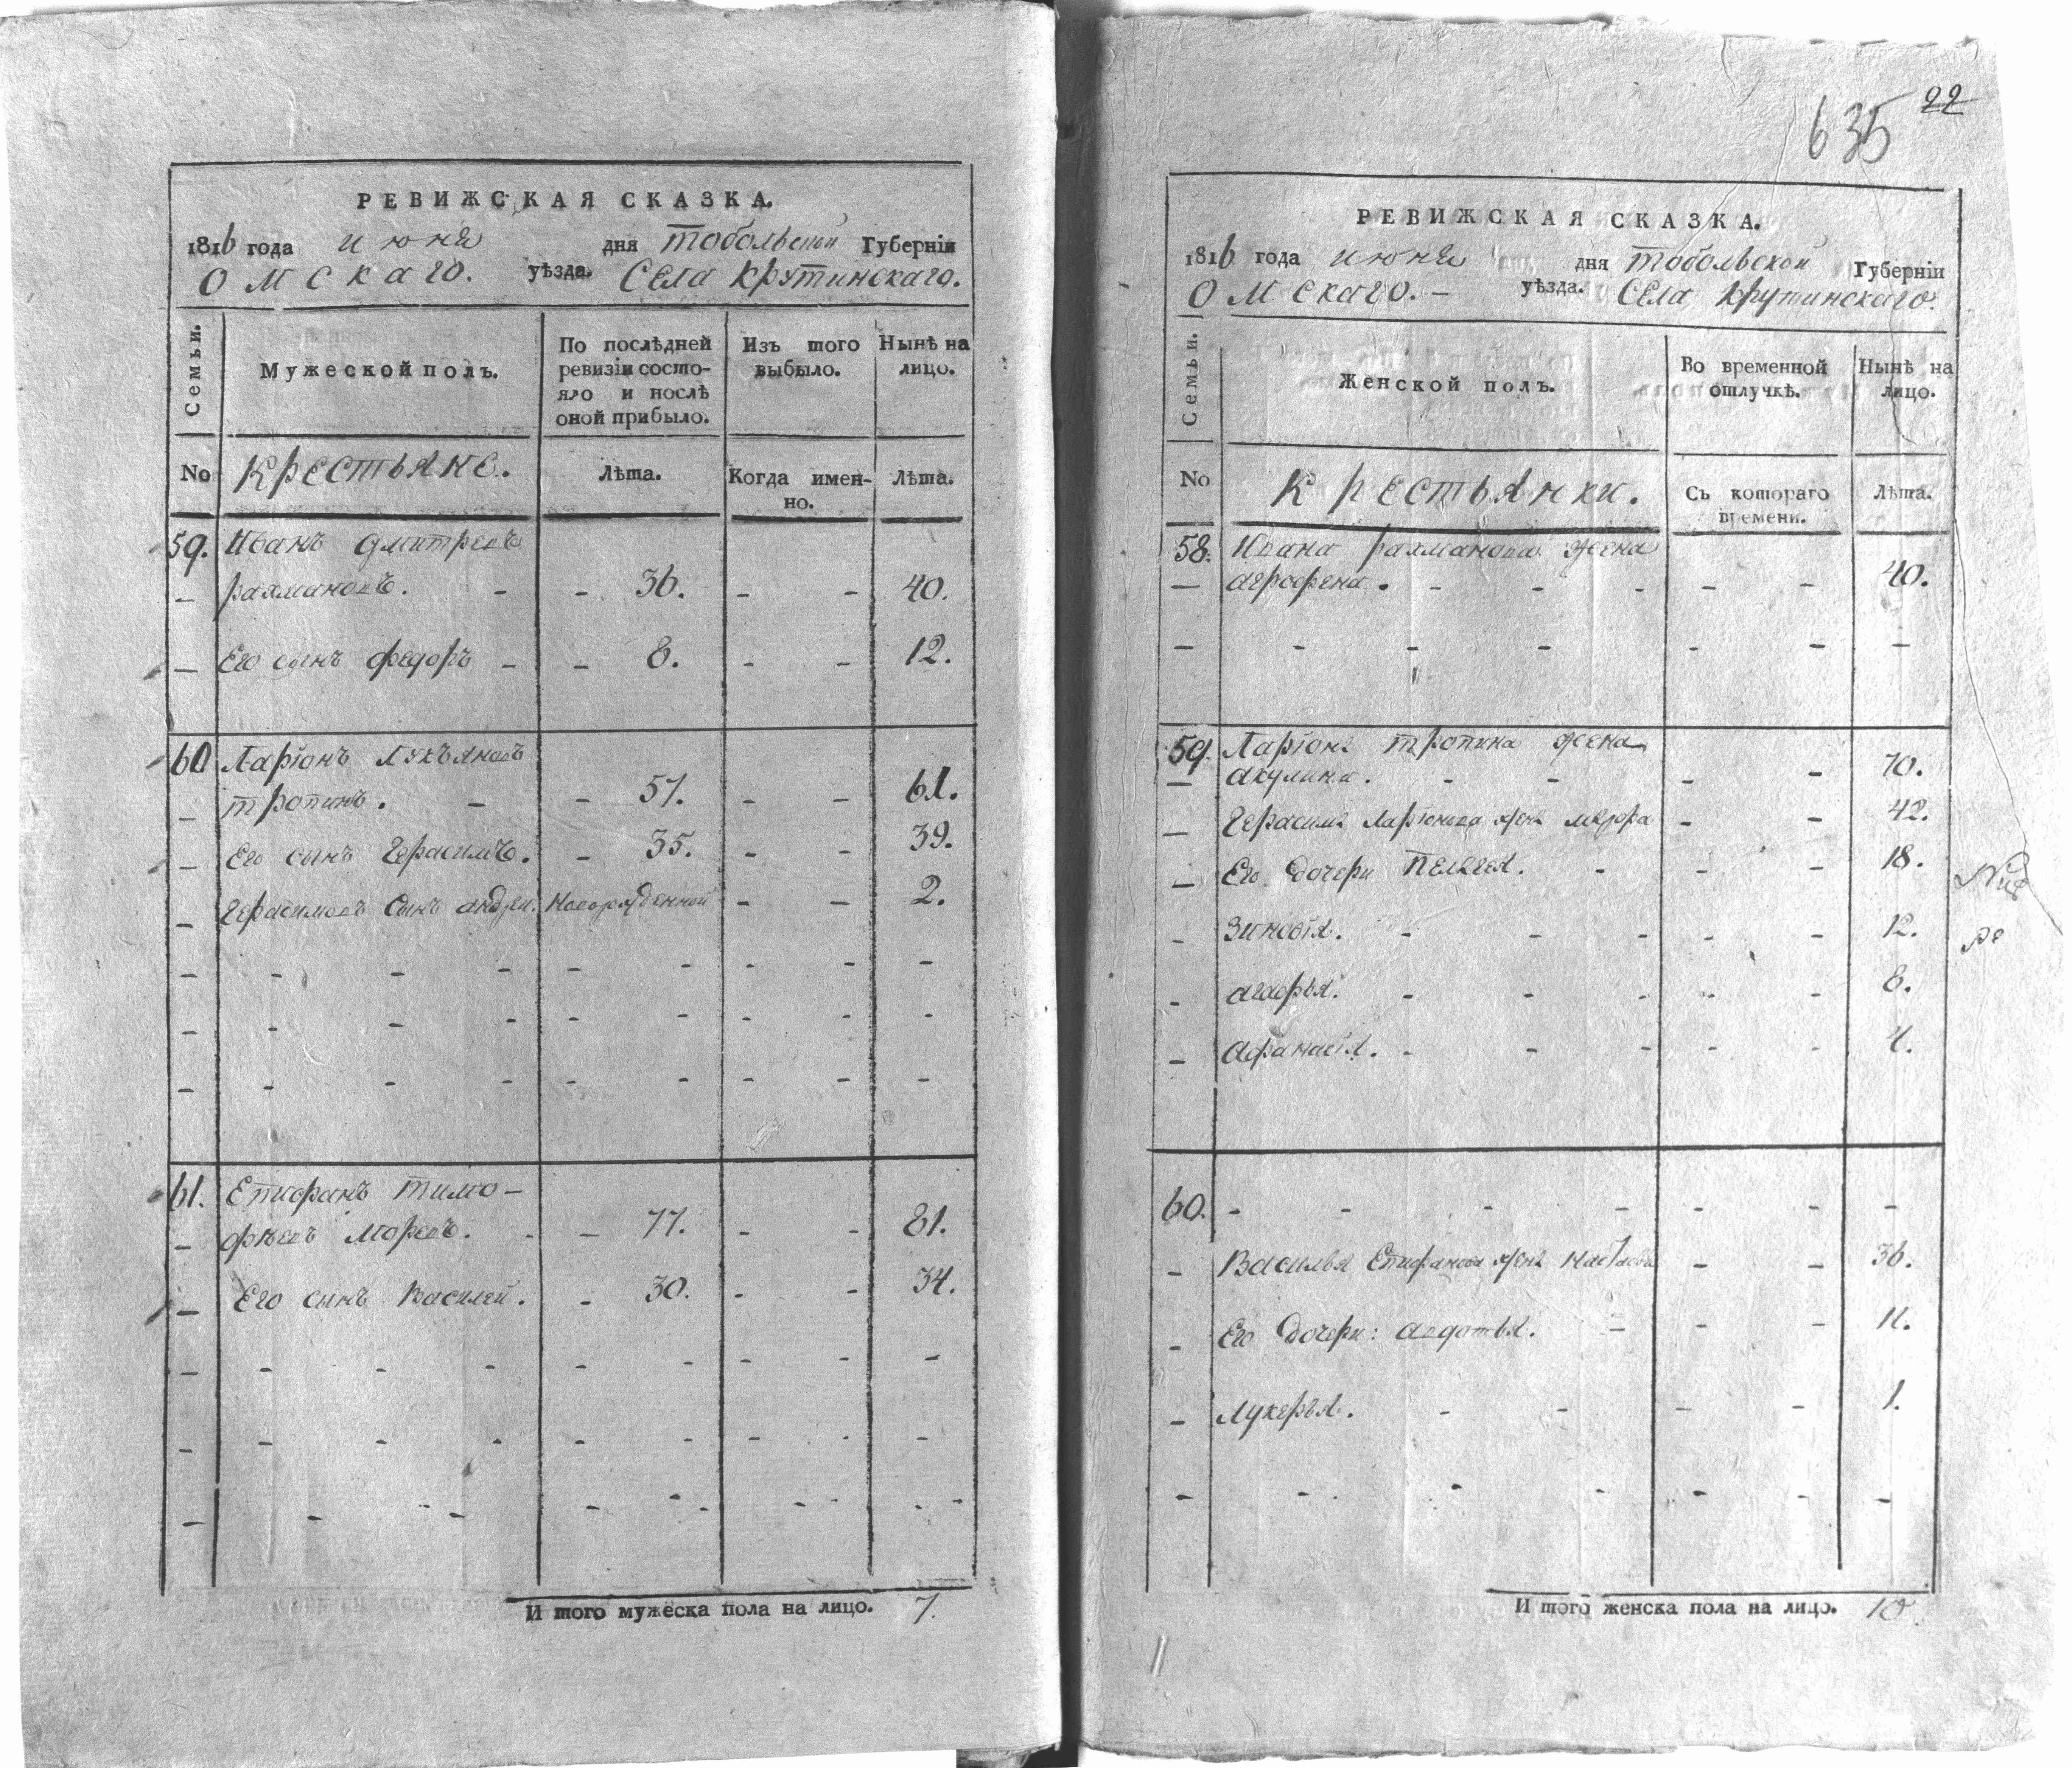 РЕВИЖСКАЯ СКАЗКА.
1816 года июня дня тобольской Губерніи
Омскаго. уѣзда. Села крутинскаго.
Семьи.
Мужеской полъ.
По послѣдней ревизіи состояло и послѣ оной прибыло.
Изъ того выбыло.
Нынѣ на лицо.
No крестьяне. Лѣта. Когда именно. Лѣта.
59. Иванъ дмитреевъ
рахмановъ. - - 36. - - 40.
Его сынъ федоръ - - 8. - - 12.
60 Ларіонъ Лукъяновъ
тропинъ. - - 57. - - 61.
Его сынъ Герасимъ. - 35. - - 39.
Герасимовъ сынъ андрей. Новорожденной - - 2.
61. Епифанъ тимо-
фѣевъ Моревъ. - - 77. - - 81.
Его сынъ Василей. - 30. - - 34.
И того мужеска пола на лицо. 7.
22
635
РЕВИЖСКАЯ СКАЗКА.
1816 года июня дня тобольской Губерніи
Омскаго. - уѣзда. Села крутинскаго.
Семьи.
Женской полъ.
Во временной отлучкѣ.
Нынѣ на лицо.
No крестьянки. Съ котораго времени. Лѣта.
58. Ивана рахманова жена
аграфена. - - - - - 40.
59. Ларіона тропина жена
акулина. - - - - 70.
Герасима Ларіонова жена - - 42.
Его дочери Пелагея. - - - 18.
Зиновія. - - - - - 12.
агафья. - - - - - 8.
Афанасія. - - - - - 4.
60. - - - - - - -
Василья Епифанова жена - - 36.
Его дочери: авдотья. - - - 11.
Лукерья. - - - - 1.
И того женска пола на лицо. 10